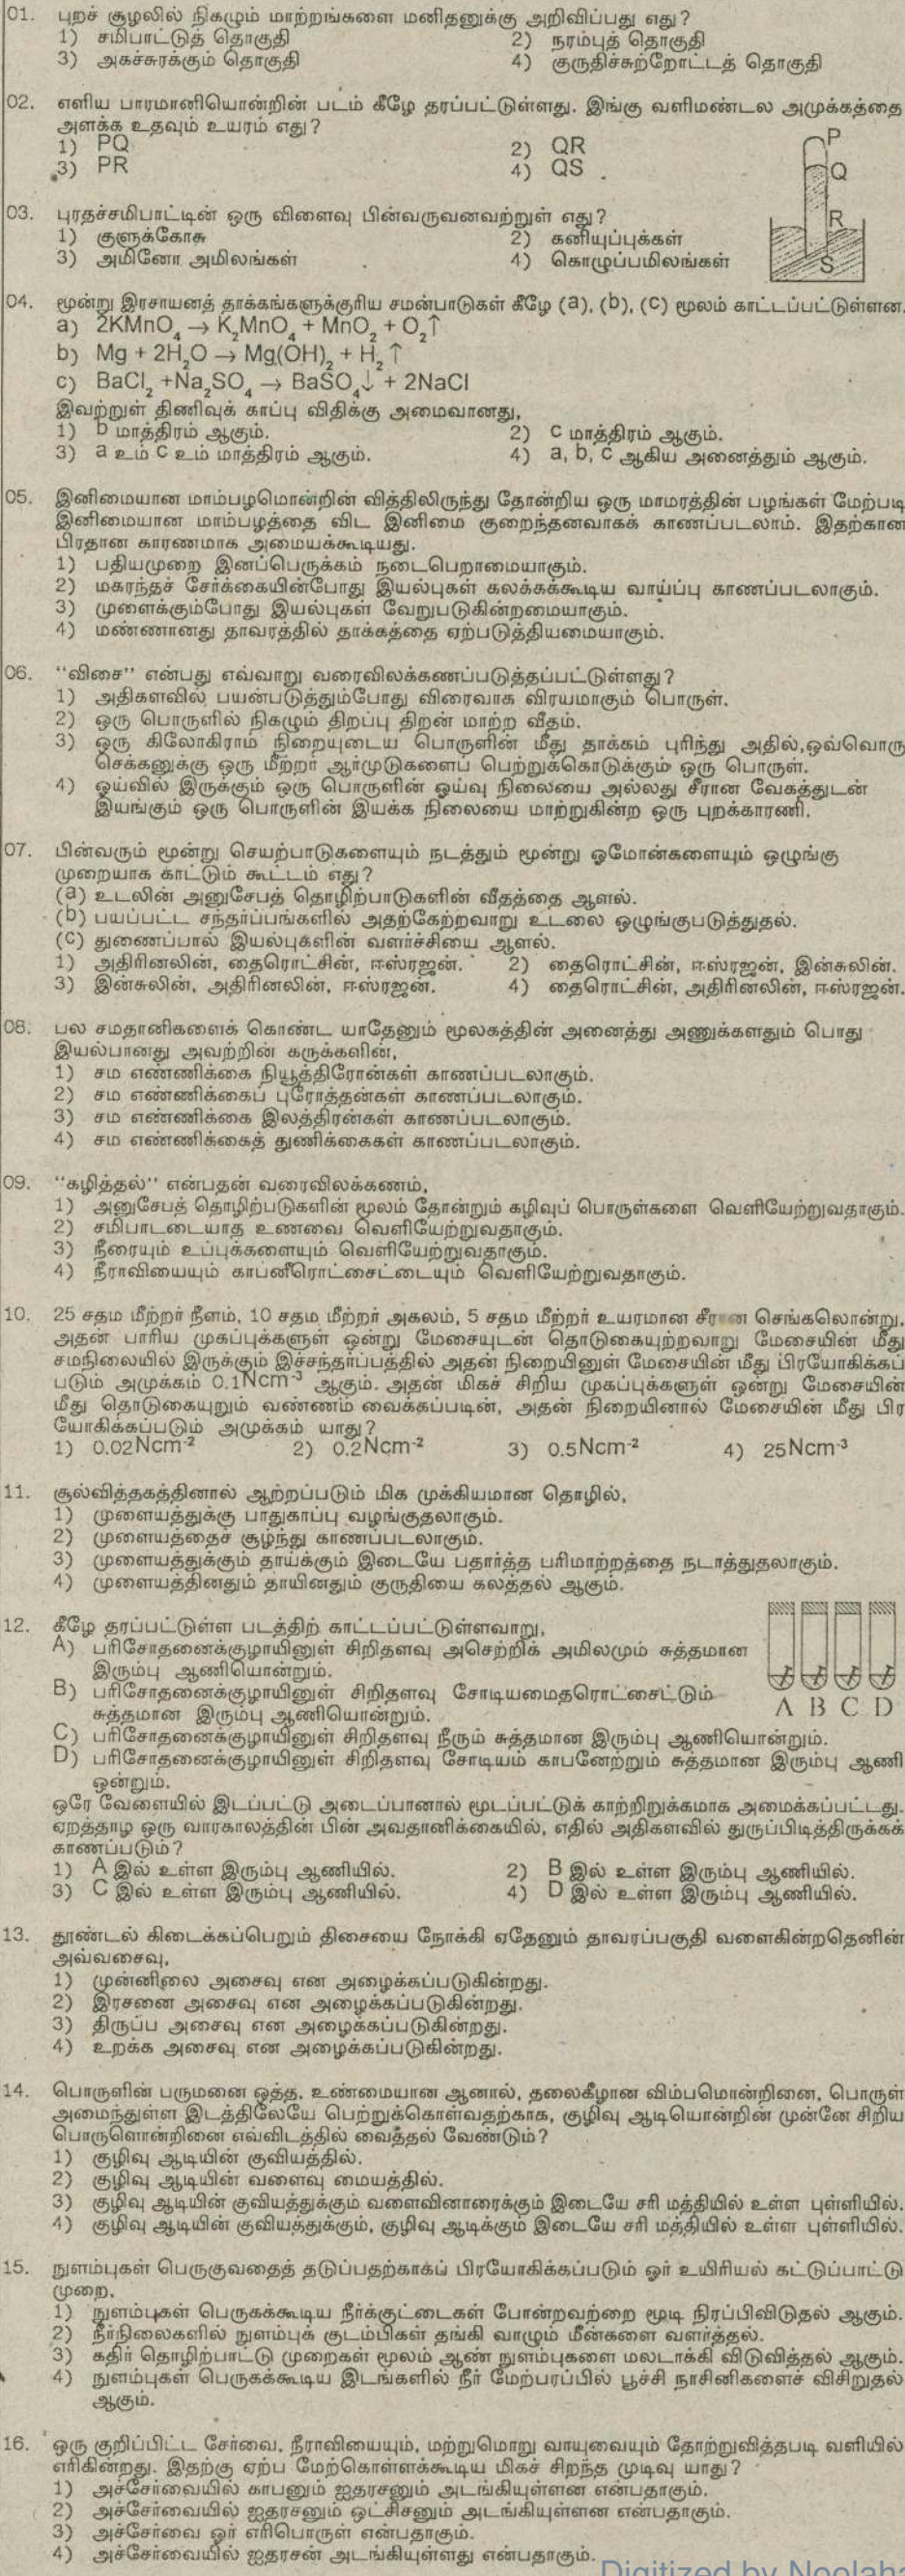 01. புறச் சூழலில் நிகழும் மாற்றங்களை மனிதனுக்கு அறிவிப்பது எது?
1) சமிபாட்டுத் தொகுதி 2) நரம்புத் தொகுதி
3) அகச்சுரக்கும் தொகுதி 4) குருதிச்சுற்றோட்டத் தொகுதி
02. எளிய பாரமானியொன்றின் படம் கீழே தரப்பட்டுள்ளது. இங்கு வளிமண்டல அமுக்கத்தை
அளக்க உதவும் உயரம் எது?
1) PQ 2) QR
3) PR 4) QS
P
Q
R
S
03. புரதச்சமிபாட்டின் ஒரு விளைவு பின்வருவனவற்றுள் எது?
1) குளுக்கோசு 2) கனியுப்புக்கள்
3) அமினோ அமிலங்கள் 4) கொழுப்பமிலங்கள்
04. மூன்று இரசாயனத் தாக்கங்களுக்குரிய சமன்பாடுகள் கீழே (a), (b), (c) மூலம் காட்டப்பட்டுள்ளன.
a) 2KMnO₄ → K₂MnO₄ + MnO₂ + O₂↑
b) Mg + 2H₂O → Mg(OH)₂ + H₂ ↑
c) BaCl₂ +Na₂SO₄ → BaSO₄↓ + 2NaCl
இவற்றுள் திணிவுக் காப்பு விதிக்கு அமைவானது,
1) b மாத்திரம் ஆகும். 2) c மாத்திரம் ஆகும்.
3) a உம் c உம் மாத்திரம் ஆகும். 4) a, b, c ஆகிய அனைத்தும் ஆகும்.
05. இனிமையான மாம்பழமொன்றின் வித்திலிருந்து தோன்றிய ஒரு மாமரத்தின் பழங்கள் மேற்படி
இனிமையான மாம்பழத்தை விட இனிமை குறைந்தனவாகக் காணப்படலாம். இதற்கான
பிரதான காரணமாக அமையக்கூடியது.
1) பதியமுறை இனப்பெருக்கம் நடைபெறாமையாகும்.
2) மகரந்தச் சேர்க்கையின்போது இயல்புகள் கலக்கக்கூடிய வாய்ப்பு காணப்படலாகும்.
3) முளைக்கும்போது இயல்புகள் வேறுபடுகின்றமையாகும்.
4) மண்ணானது தாவரத்தில் தாக்கத்தை ஏற்படுத்தியமையாகும்.
06. "விசை" என்பது எவ்வாறு வரைவிலக்கணப்படுத்தப்பட்டுள்ளது?
1) அதிகளவில் பயன்படுத்தும்போது விரைவாக விரயமாகும் பொருள்.
2) ஒரு பொருளில் நிகழும் திறப்பு திறன் மாற்ற வீதம்.
3) ஒரு கிலோகிராம் நிறையுடைய பொருளின் மீது தாக்கம் புரிந்து அதில்,ஒவ்வொரு
செக்கனுக்கு ஒரு மீற்றர் ஆர்முடுகளைப் பெற்றுக்கொடுக்கும் ஒரு பொருள்.
4) ஓய்வில் இருக்கும் ஒரு பொருளின் ஓய்வு நிலையை அல்லது சீரான வேகத்துடன்
இயங்கும் ஒரு பொருளின் இயக்க நிலையை மாற்றுகின்ற ஒரு புறக்காரணி.
07. பின்வரும் மூன்று செயற்பாடுகளையும் நடத்தும் மூன்று ஓமோன்களையும் ஒழுங்கு
முறையாக காட்டும் கூட்டம் எது?
(a) உடலின் அனுசேபத் தொழிற்பாடுகளின் வீதத்தை ஆளல்.
(b) பயப்பட்ட சந்தர்ப்பங்களில் அதற்கேற்றவாறு உடலை ஒழுங்குபடுத்துதல்.
(c) துணைப்பால் இயல்புகளின் வளர்ச்சியை ஆளல்.
1) அதிரினலின், தைரொட்சின், ஈஸ்ரஜன். 2) தைரொட்சின், ஈஸ்ரஜன், இன்சுலின்.
3) இன்சுலின், அதிரினலின், ஈஸ்ரஜன். 4) தைரொட்சின், அதிரினலின், ஈஸ்ரஜன்.
08. பல சமதானிகளைக் கொண்ட யாதேனும் மூலகத்தின் அனைத்து அணுக்களதும் பொது
இயல்பானது அவற்றின் கருக்களின்,
1) சம எண்ணிக்கை நியூத்திரோன்கள் காணப்படலாகும்.
2) சம எண்ணிக்கைப் புரோத்தன்கள் காணப்படலாகும்.
3) சம எண்ணிக்கை இலத்திரன்கள் காணப்படலாகும்.
4) சம எண்ணிக்கைத் துணிக்கைகள் காணப்படலாகும்.
09. "கழித்தல்" என்பதன் வரைவிலக்கணம்,
1) அனுசேபத் தொழிற்படுகளின் மூலம் தோன்றும் கழிவுப் பொருள்களை வெளியேற்றுவதாகும்.
2) சமிபாடடையாத உணவை வெளியேற்றுவதாகும்.
3) நீரையும் உப்புக்களையும் வெளியேற்றுவதாகும்.
4) நீராவியையும் காபனீரொட்சைட்டையும் வெளியேற்றுவதாகும்.
10. 25 சதம மீற்றர் நீளம், 10 சதம மீற்றர் அகலம், 5 சதம மீற்றர் உயரமான சீரான செங்கலொன்று,
அதன் பாரிய முகப்புக்களுள் ஒன்று மேசையுடன் தொடுகையுற்றவாறு மேசையின் மீது
சமநிலையில் இருக்கும் இச்சந்தர்ப்பத்தில் அதன் நிறையினுள் மேசையின் மீது பிரயோகிக்கப்
படும் அமுக்கம் 0.1Ncm⁻³ ஆகும். அதன் மிகச் சிறிய முகப்புக்களுள் ஒன்று மேசையின்
மீது தொடுகையுறும் வண்ணம் வைக்கப்படின், அதன் நிறையினால் மேசையின் மீது பிர
யோகிக்கப்படும் அமுக்கம் யாது?
1) 0.02Ncm⁻² 2) 0.2Ncm⁻² 3) 0.5Ncm⁻² 4) 25Ncm⁻³
11. சூல்வித்தகத்தினால் ஆற்றப்படும் மிக முக்கியமான தொழில்,
1) முளையத்துக்கு பாதுகாப்பு வழங்குதலாகும்.
2) முளையத்தைச் சூழ்ந்து காணப்படலாகும்.
3) முளையத்துக்கும் தாய்க்கும் இடையே பதார்த்த பரிமாற்றத்தை நடாத்துதலாகும்.
4) முளையத்தினதும் தாயினதும் குருதியை கலத்தல் ஆகும்.
12. கீழே தரப்பட்டுள்ள படத்திற் காட்டப்பட்டுள்ளவாறு,
A) பரிசோதனைக்குழாயினுள் சிறிதளவு அசெற்றிக் அமிலமும் சுத்தமான
இரும்பு ஆணியொன்றும்.
B) பரிசோதனைக்குழாயினுள் சிறிதளவு சோடியமைதரொட்சைட்டும்
சுத்தமான இரும்பு ஆணியொன்றும்.
A B C D
C) பரிசோதனைக்குழாயினுள் சிறிதளவு நீரும் சுத்தமான இரும்பு ஆணியொன்றும்.
D) பரிசோதனைக்குழாயினுள் சிறிதளவு சோடியம் காபனேற்றும் சுத்தமான இரும்பு ஆணி
ஒன்றும்.
ஒரே வேளையில் இடப்பட்டு அடைப்பானால் மூடப்பட்டுக் காற்றிறுக்கமாக அமைக்கப்பட்டது.
ஏறத்தாழ ஒரு வாரகாலத்தின் பின் அவதானிக்கையில், எதில் அதிகளவில் துருப்பிடித்திருக்கக்
காணப்படும்?
1) A இல் உள்ள இரும்பு ஆணியில். 2) B இல் உள்ள இரும்பு ஆணியில்.
3) C இல் உள்ள இரும்பு ஆணியில். 4) D இல் உள்ள இரும்பு ஆணியில்.
13. தூண்டல் கிடைக்கப்பெறும் திசையை நோக்கி ஏதேனும் தாவரப்பகுதி வளைகின்றதெனின்
அவ்வசைவு,
1) முன்னிலை அசைவு என அழைக்கப்படுகின்றது.
2) இரசனை அசைவு என அழைக்கப்படுகின்றது.
3) திருப்ப அசைவு என அழைக்கப்படுகின்றது.
4) உறக்க அசைவு என அழைக்கப்படுகின்றது.
14. பொருளின் பருமனை ஒத்த, உண்மையான ஆனால், தலைகீழான விம்பமொன்றினை, பொருள்
அமைந்துள்ள இடத்திலேயே பெற்றுக்கொள்வதற்காக, குழிவு ஆடியொன்றின் முன்னே சிறிய
பொருளொன்றினை எவ்விடத்தில் வைத்தல் வேண்டும்?
1) குழிவு ஆடியின் குவியத்தில்.
2) குழிவு ஆடியின் வளைவு மையத்தில்.
3) குழிவு ஆடியின் குவியத்துக்கும் வளைவினாரைக்கும் இடையே சரி மத்தியில் உள்ள புள்ளியில்.
4) குழிவு ஆடியின் குவியத்துக்கும், குழிவு ஆடிக்கும் இடையே சரி மத்தியில் உள்ள புள்ளியில்.
15. நுளம்புகள் பெருகுவதைத் தடுப்பதற்காகப் பிரயோகிக்கப்படும் ஓர் உயிரியல் கட்டுப்பாட்டு
முறை,
1) நுளம்புகள் பெருகக்கூடிய நீர்க்குட்டைகள் போன்றவற்றை மூடி நிரப்பிவிடுதல் ஆகும்.
2) நீர்நிலைகளில் நுளம்புக் குடம்பிகள் தங்கி வாழும் மீன்களை வளர்த்தல்.
3) கதிர் தொழிற்பாட்டு முறைகள் மூலம் ஆண் நுளம்புகளை மலடாக்கி விடுவித்தல் ஆகும்.
4) நுளம்புகள் பெருகக்கூடிய இடங்களில் நீர் மேற்பரப்பில் பூச்சி நாசினிகளைச் விசிறுதல்
ஆகும்.
16. ஒரு குறிப்பிட்ட சேர்வை, நீராவியையும், மற்றுமொறு வாயுவையும் தோற்றுவித்தபடி வளியில்
எரிகின்றது. இதற்கு ஏற்ப மேற்கொள்ளக்கூடிய மிகச் சிறந்த முடிவு யாது?
1) அச்சேர்வையில் காபனும் ஐதரசனும் அடங்கியுள்ளன என்பதாகும்.
2) அச்சேர்வையில் ஐதரசனும் ஒட்சிசனும் அடங்கியுள்ளன என்பதாகும்.
3) அச்சேர்வை ஓர் எரிபொருள் என்பதாகும்.
4) அச்சேர்வையில் ஐதரசன் அடங்கியுள்ளது என்பதாகும்.
Digitized by Noolaha